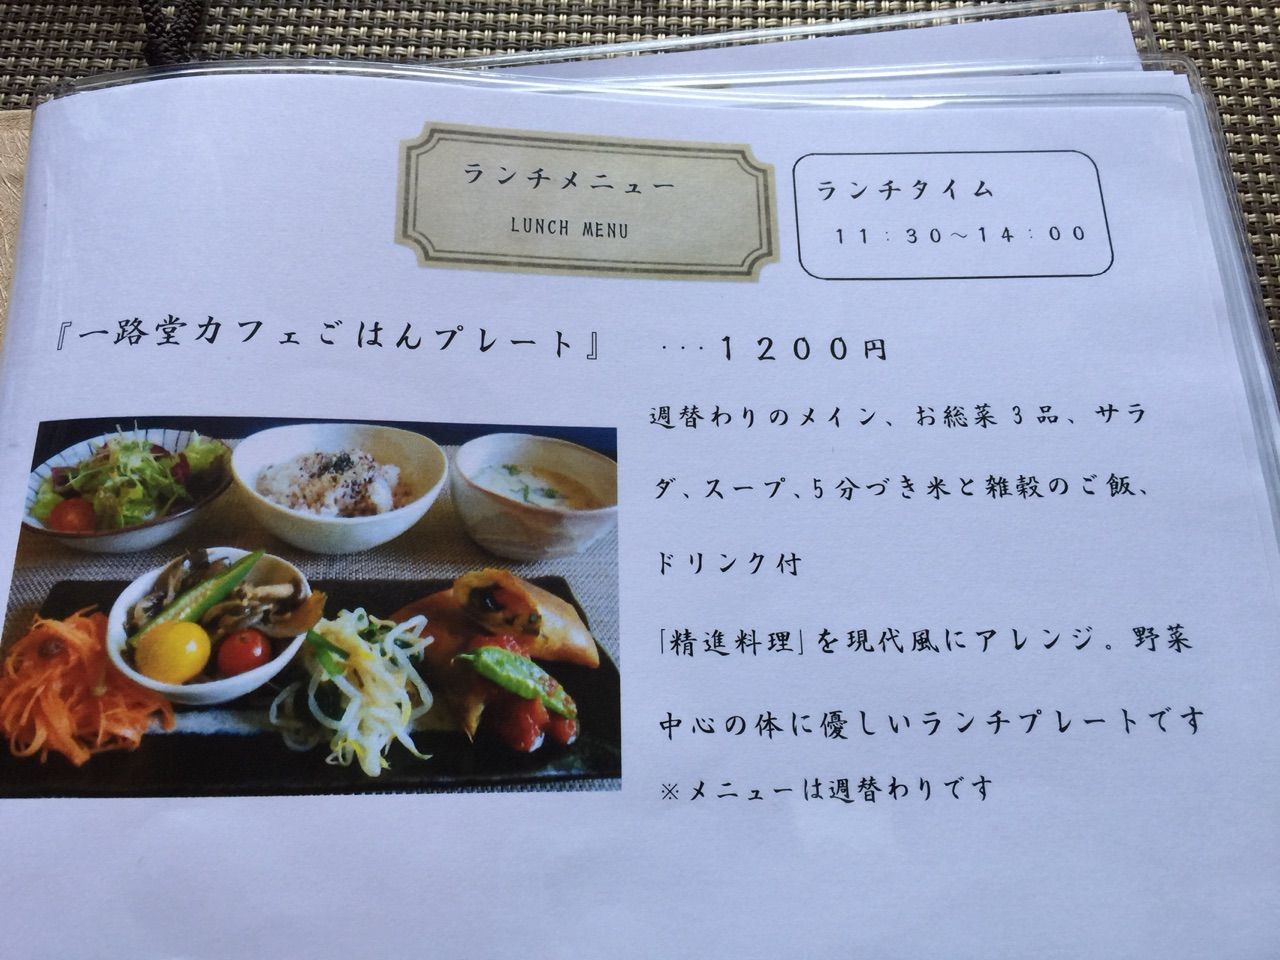 ランチメニュー
LUNCH MENU
ランチタイム
11:30～14:00
『一路堂カフェごはんプレート』 ···1200円
週替わりのメイン、お総菜3品、サラ
ダ、スープ、5分づき米と雑穀のご飯、
ドリンク付
「精進料理」を現代風にアレンジ。野菜
中心の体に優しいランチプレートです
※メニューは週替わりです